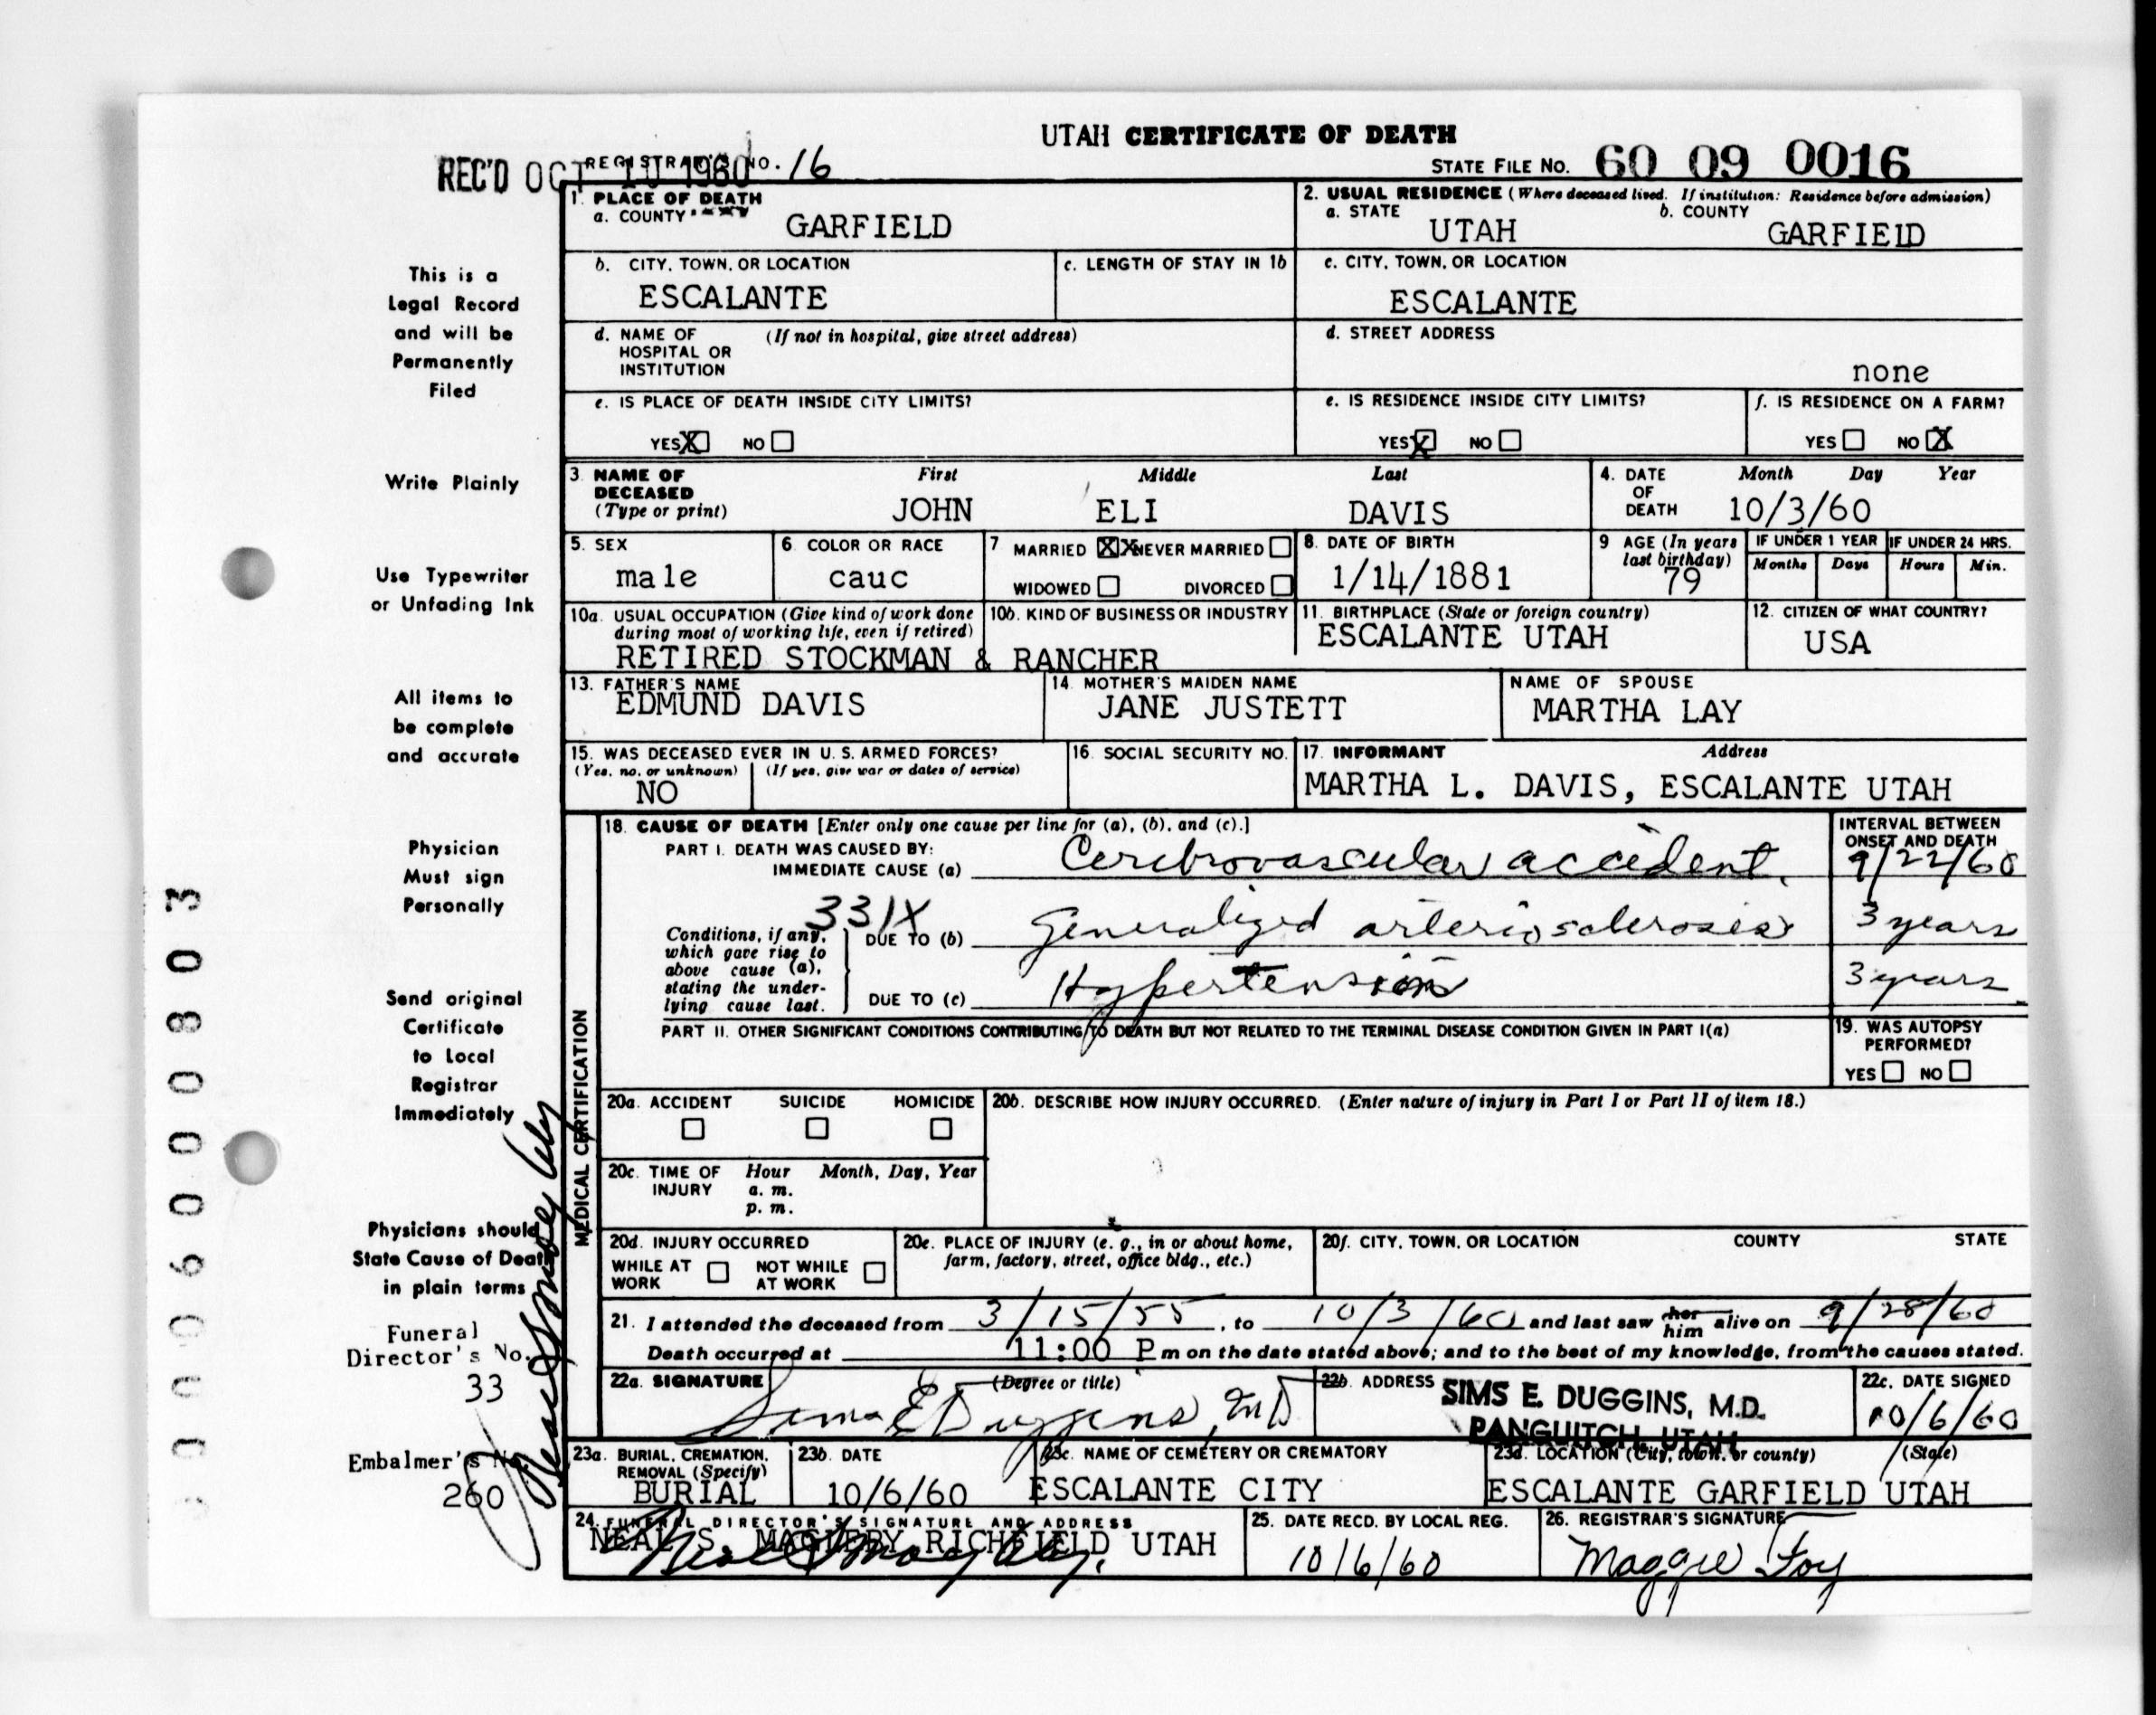 UTAH CERTIFICATE OF DEATH
REC'D OCT 10 1960 REGISTRAR'S NO. 16
STATE FILE NO. 60 09 0016
1. PLACE OF DEATH
a. COUNTY
GARFIELD
2. USUAL RESIDENCE (Where deceased lived. If institution: Residence before admission)
a. STATE
UTAH
b. COUNTY
GARFIELD
b. CITY, TOWN, OR LOCATION
ESCALANTE
c. LENGTH OF STAY IN 1b
c. CITY, TOWN, OR LOCATION
ESCALANTE
d. NAME OF HOSPITAL OR INSTITUTION
(If not in hospital, give street address)
d. STREET ADDRESS
none
e. IS PLACE OF DEATH INSIDE CITY LIMITS?
YES X NO
e. IS RESIDENCE INSIDE CITY LIMITS?
YES X NO
f. IS RESIDENCE ON A FARM?
YES NO X
3. NAME OF DECEASED (Type or print)
First Middle Last
JOHN ELI DAVIS
4. DATE OF DEATH
Month Day Year
10/3/60
5. SEX
male
6. COLOR OR RACE
cauc
7 MARRIED XX NEVER MARRIED
WIDOWED DIVORCED
8. DATE OF BIRTH
1/14/1881
9 AGE (In years last birthday)
79
IF UNDER 1 YEAR
Months Days
IF UNDER 24 HRS.
Hours Min.
10a. USUAL OCCUPATION (Give kind of work done during most of working life, even if retired)
10b. KIND OF BUSINESS OR INDUSTRY
RETIRED STOCKMAN & RANCHER
11. BIRTHPLACE (State or foreign country)
ESCALANTE UTAH
12. CITIZEN OF WHAT COUNTRY?
USA
13. FATHER'S NAME
EDMUND DAVIS
14. MOTHER'S MAIDEN NAME
JANE JUSTETT
NAME OF SPOUSE
MARTHA LAY
15. WAS DECEASED EVER IN U. S. ARMED FORCES?
(Yes, no, or unknown) (If yes, give war or dates of service)
NO
16. SOCIAL SECURITY NO.
17. INFORMANT Address
MARTHA L. DAVIS, ESCALANTE UTAH
MEDICAL CERTIFICATION
18. CAUSE OF DEATH [Enter only one cause per line for (a), (b), and (c).]
PART I. DEATH WAS CAUSED BY:
IMMEDIATE CAUSE (a) Cerebrovascular accident.
INTERVAL BETWEEN ONSET AND DEATH
9/22/60
331X
Conditions, if any, which gave rise to above cause (a), stating the underlying cause last.
DUE TO (b) Generalized arteriosclerosis
3 years
DUE TO (c) Hypertension
3 years
PART II. OTHER SIGNIFICANT CONDITIONS CONTRIBUTING TO DEATH BUT NOT RELATED TO THE TERMINAL DISEASE CONDITION GIVEN IN PART I(a)
19. WAS AUTOPSY PERFORMED?
YES NO
20a. ACCIDENT SUICIDE HOMICIDE
20b. DESCRIBE HOW INJURY OCCURRED. (Enter nature of injury in Part I or Part II of item 18.)
20c. TIME OF INJURY
Hour Month, Day, Year
a. m.
p. m.
20d. INJURY OCCURRED
WHILE AT WORK NOT WHILE AT WORK
20e. PLACE OF INJURY (e. g., in or about home, farm, factory, street, office bldg., etc.)
20f. CITY, TOWN, OR LOCATION COUNTY STATE
21. I attended the deceased from 3/15/55, to 10/3/60 and last saw her him alive on 9/28/60
Death occurred at 11:00 P m on the date stated above; and to the best of my knowledge, from the causes stated.
22a. SIGNATURE (Degree or title)
Sims E Duggins, MD
22b. ADDRESS
SIMS E. DUGGINS, M.D.
PANGUITCH, UTAH
22c. DATE SIGNED
10/6/60
23a. BURIAL, CREMATION, REMOVAL (Specify)
BURIAL
23b. DATE
10/6/60
23c. NAME OF CEMETERY OR CREMATORY
ESCALANTE CITY
23d. LOCATION (City, town, or county) (State)
ESCALANTE GARFIELD UTAH
24. FUNERAL DIRECTOR'S SIGNATURE AND ADDRESS
NEAL S. MAGLEBY RICHFIELD UTAH
Neal S Magleby.
25. DATE RECD. BY LOCAL REG.
10/6/60
26. REGISTRAR'S SIGNATURE
Maggie Foy
This is a
Legal Record
and will be
Permanently
Filed
Write Plainly
Use Typewriter
or Unfading Ink
All items to
be complete
and accurate
Physician
Must sign
Personally
Send original
Certificate
to Local
Registrar
Immediately
Physicians should
State Cause of Death
in plain terms
Funeral
Director's No.
33
Embalmer's No.
260
Neal S Magleby